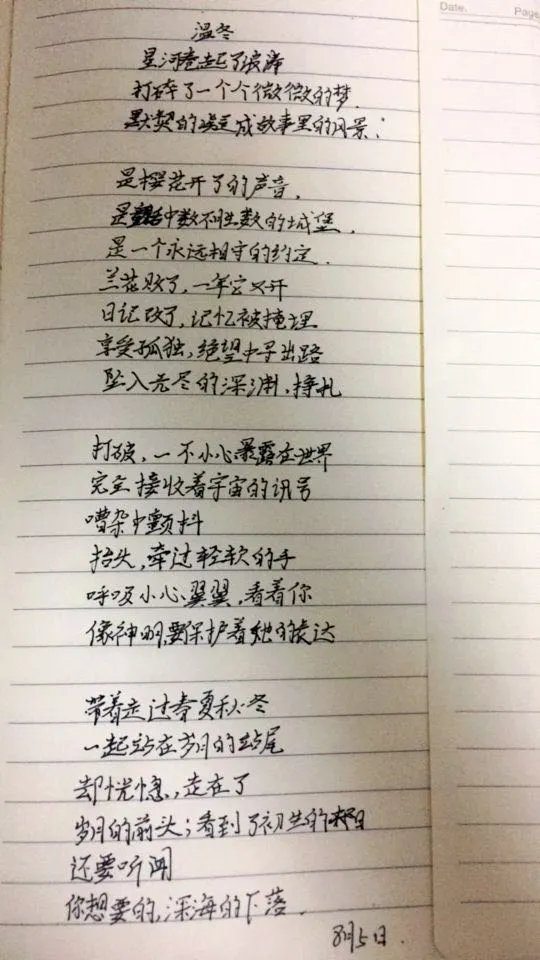 Date.
Page.
温冬
星河卷起了浪涛
打碎了一个个微微的梦.
默契的淀成故事里的风景;
是樱花开了的声音,
是中数不胜数的城堡,
是一个永远相守的约定.
兰花败了,一年它又开
日记改了,记忆被掩埋
享受孤独,绝望中寻出路
坠入无尽的深渊,挣扎
打破,一不小心暴露在世界
完全接收着宇宙的讯号
嘈杂中颤抖
抬头,牵过轻软的手
呼吸小心翼翼,看着你
像神明,要保护着她的表达
带着走过春夏秋冬
一起站在岁月的站尾
却恍惚,走在了
岁月的前头;看到了初生的
还要听闻
你想要的,深海的下落.
8月5日.